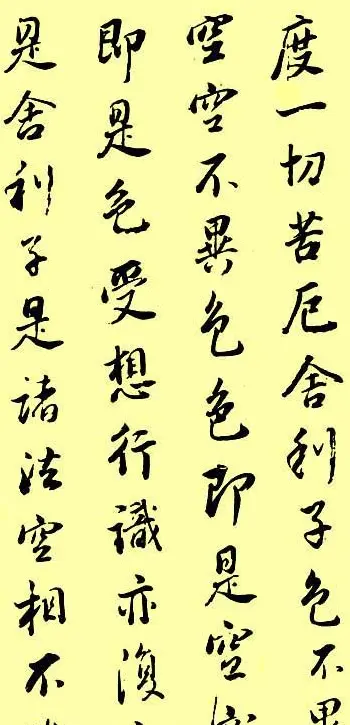 度一切苦厄舍利子色不異
空空不異色色即是空
即是色受想行識亦復
是舍利子是諸法空相不